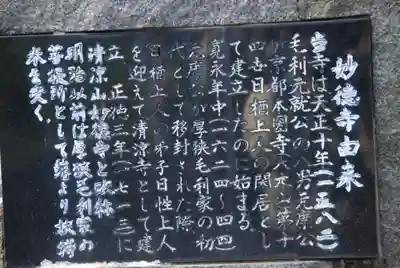 妙徳寺由来
当寺は天正十年(一五八二)
毛利元就公の八男元康公
が京都本圀寺大光山第十
四世日栖上人の閑居とし
て建立したのに始まる。
寛永年中(一六二四~四四)
元康公が厚狭毛利家の初
代として移封された際、
日栖上人の弟子日性上人
を迎えて清涼寺として建
立 正徳三年(一七一三)に
清涼山妙徳寺と改称
明治以前は厚狭毛利家の
菩提所として藩より扶持
米を受く。